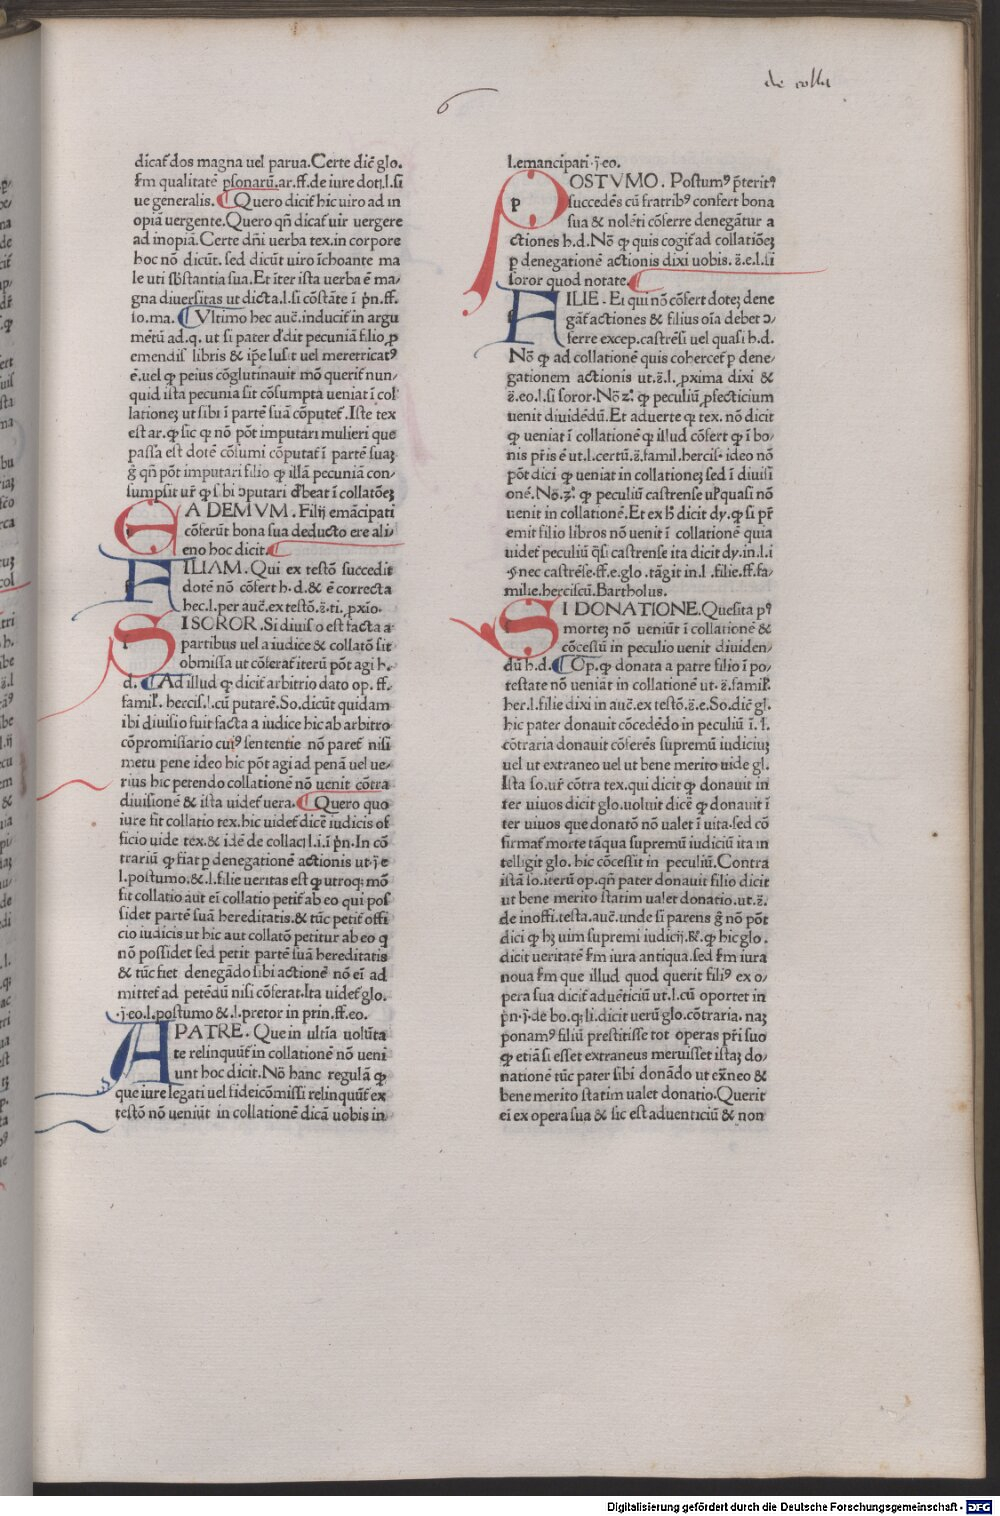 de colla
6
dicať dos magna uel parua.Certe dic̄ glo.
ẜm qualitatē ꝑsonaꝝ.ar.ff.de iure doti.l.si
ue generalis. Quero diciť hic uiro ad in
opiā uergente.Quero qn̄ dicať uir uergere
ad inopiā.Certe dn̄i uerba tex.in corpore
hoc nō dicūt. sed dicūt uiro īchoante ma
le uti sb̄stantia sua.Et iter ista uerba ē ma/
gna diuersitas ut dicta.l.si cōstāte ī pn̄.ff.
so.ma. Vltimo hec auē.induciť in argu
mētū ad.q. ut si pater dedit pecuniā filio ꝓ
emendis libris & ip̄e lusit uel meretricatꝰ
ē.uel ꝙ peius cōglutinauit mō queriť nun/
quid ista pecunia sit cōsumpta ueniat ī col
lationeꝫ ut sibi ī partē suā cōputeť.Iste tex
est ar.ꝙ sic ꝙ nō pōt imputari mulieri que
passa est dotē cōsumi cōputať ī partē suaꝫ
g̊ qn̄ pōt imputari filio ꝙ illā pecuniā con/
sumpsit ur̄ ꝙ sibi ɔputari debeat ī collatōeꝫ
EA DEMVM.Filij emācipati
cōferūt bona sua deducto ere ali/
eno hoc dicit.
FILIAM.Qui ex testō succedit
dotē nō cōfert h.d.& ē correcta
hec.l.per auē.ex testō.s̄.ti.ꝓxīo.
SI SOROR.Si diuisio est facta a
partibus uel a iudice & collatō sit
obmissa ut cōferať iterū pōt agi h.
d. Ad illud ꝙ diciť arbitrio dato op.ff.
famił.hercis.l.cū putarē.So.dicūt quidam
ibi diuisio fuit facta a iudice hic ab arbitro
cōpromissario cuiꝰ sententie nō pareť nisi
metu pene ideo hic pōt agi ad penā uel ue/
rius hic petendo collationē nō uenit cōtra
diuisionē & ista uideť uera. Quero quo
iure fit collatio tex.hic uideť dicē iudicis of
ficio uide tex.& idē de collaci.l.i.ī pn̄.In cō
trariū ꝙ fiat ꝑ denegationē actionis ut.j.e
l.postumo.&.l.filie ueritas est ꝙ utroqꝫ mō
fit collatio aut eī collatio petiť ab eo qui pos
sidet partē suā hereditatis.& tūc petiť offi
cio iudicis ut hic aut collatō petitur ab eo q
nō possidet sed petit partē suā hereditatis
& tūc fiet denegādo sibi actionē nō eī ad
mitteť ad petēdū nisi cōferat.Ita uideť glo.
.j.eo.l.postumo &.l.pretor in prin.ff.eo.
A PATRE.Que in ultīa uolūta
te relinquūť in collationē nō ueni
unt hoc dicit.Nō hanc regulā ꝙ
que iure legati uel fideicōmissi relinquūť ex
testō nō ueniūt in collationē dicā uobis in
l.emancipati.j.eo.
POSTVMO.Postumꝰ p̄teritꝰ
succedēs cū fratribꝰ confert bona
sua & nolēti cōferre denegātur a
ctiones h.d.Nō ꝙ quis cogiť ad collatiōeꝫ
ꝑ denegationē actionis dixi uobis.s̄.e.l.si
soror quod notate.
FILIE.Ei qui nō cōfert doteꝫ dene
gāť actiones & filius oīa debet ɔ/
ferre excep.castrēsi uel quasi h.d.
Nō ꝙ ad collationē quis coherceť ꝑ dene/
gationem actionis ut.s̄.l.ꝓxima dixi &
s̄.eo.l.si soror.Nō.zͦ. ꝙ peculiū ꝓfecticium
uenit diuidēdū.Et aduerte ꝙ tex.nō dicit
ꝙ ueniat ī collationē ꝙ illud cōfert ꝙ ī bo/
nis pr̄is ē ut.l.certū.s̄.famil.hercis.ideo nō
pōt dici ꝙ ueniat in collationeꝫ sed ī diuisi
onē.Nō.zͦ. ꝙ peculiū castrense ul̓ quasi nō
uenit in collationē.Et ex h̄ dicit dy.ꝙ si pr̄
emit filio libros nō uenit ī collationē quia
uideť peculiū q̄si castrense ita dicit dy.in.l.i
.§.nec castrēse.ff.e.glo.tāgit in.l.filie.ff.fa/
milie.herciscū.Bartholus.
SI DONATIONE.Quesita pꝰ
morteꝫ nō ueniūt ī collationē &
cōcessū in peculio uenit diuiden/
dū h.d. Op.ꝙ donata a patre filio ī po/
testate nō ueniāt in collationē ut.s̄.famił.
her.l.filie dixi in auē.ex testō.s̄.e.So.dic̄ gl.
hic pater donauit cōcedēdo in peculiū ī.l.
cōtraria donauit cōferēs supremū iudiciuꝫ
uel ut extraneo uel ut bene merito uide gl.
Ista so.ur̄ cōtra tex.qui dicit ꝙ donauit in
ter uiuos dicit glo.uoluit dicē ꝙ donauit ī
ter uiuos que donatō nō ualet ī uita.sed cō
firmať morte tāqua supremū iudiciū ita in
telligit glo.hic cōcessit in peculiū.Contra
istā so.iterū op.qn̄ pater donauit filio dicit
ut bene merito statim ualet donatio.ut.s̄.
de inoffi.testa.auē.unde si parens g̊ nō pōt
dici ꝙ hꝫ uim supremi iudicij.R̄.ꝙ hic glo.
dicit ueritatē ẜm iura antiqua.sed ẜm iura
noua ẜm que illud quod querit filiꝰ ex o/
pera sua diciť aduēticiū ut.l.cū oportet in
pn̄.j.de bo.q.li.dicit uerū glo.cōtraria.naꝫ
ponamꝰ filiū prestitisse tot operas pr̄i suo
ꝙ etiā si esset extraneus meruisset istaꝫ do/
nationē tūc pater sibi donādo ut ex̄neo &
bene merito statim ualet donatio.Querit
eī ex opera sua & sic est aduenticiū & non
Digitalisierung gefördert durch die Deutsche Forschungsgemeinschaft - DFG